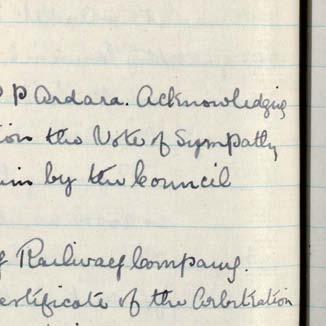 P P Ardara. Acknowledging
the Vote of Sympathy
by the Council
Railway Company.
of the Arbitration